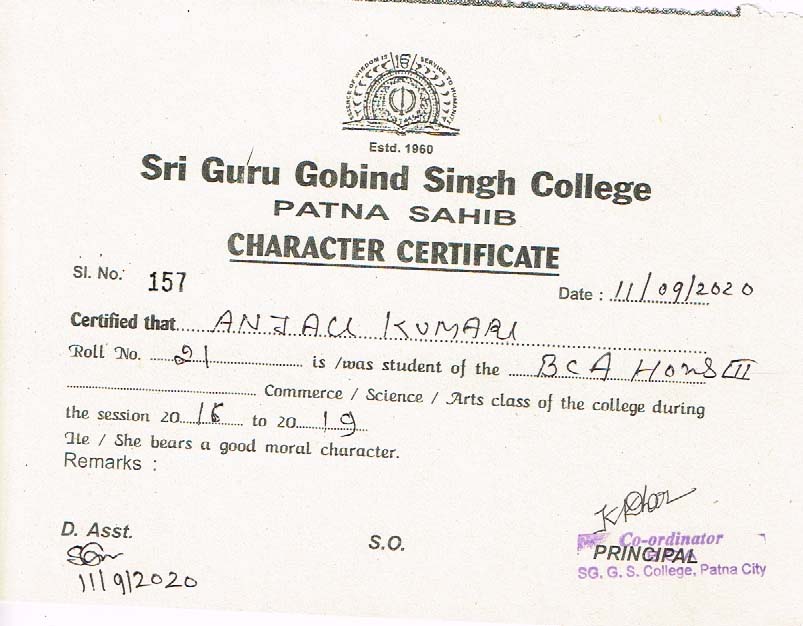 ESSENCE OF WISDOM IS ੴ SERVICE TO HUMANITY
Estd. 1960
Sri Guru Gobind Singh College
PATNA SAHIB
CHARACTER CERTIFICATE
Sl. No. 157
Date : 11/09/2020
Certified that ANJALI KUMARI
Roll No. 21 is /was student of the BCA Hons III
Commerce / Science / Arts class of the college during
the session 2016 to 2019
He / She bears a good moral character.
Remarks :
D. Asst.
11/9/2020
S.O.
Co-ordinator
PRINCIPAL
SG. G. S. College, Patna City